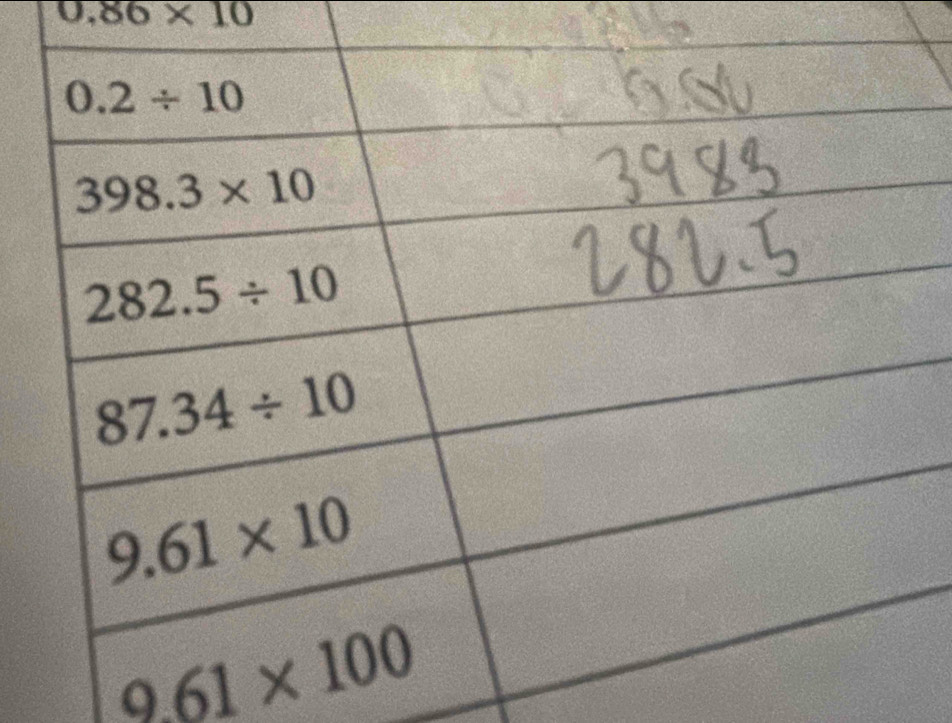 0.86 × 10
0.2 ÷ 10
398.3 × 10 3983
282.5 ÷ 10 282.5
87.34 ÷ 10
9.61 × 10
9.61 × 100